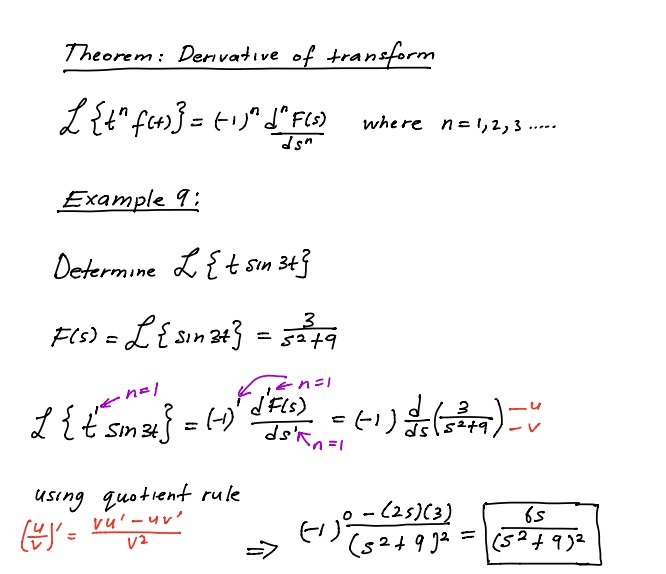 Theorem: Derivative of transform
ℒ{tⁿ f(t)} = (-1)ⁿ dⁿ F(s)/dsⁿ where n = 1, 2, 3 .....
Example 9:
Determine ℒ{t sin 3t}
F(s) = ℒ{sin 3t} = 3/(s²+9)
n=1 n=1
ℒ{t¹ sin 3t} = (-1)¹ d¹F(s)/ds¹ = (-1) d/ds (3/(s²+9)) –u –v
n=1
using quotient rule
(u/v)' = (vu' - uv')/v² => (-1) (0 - (2s)(3))/(s²+9)² = 6s/(s²+9)²